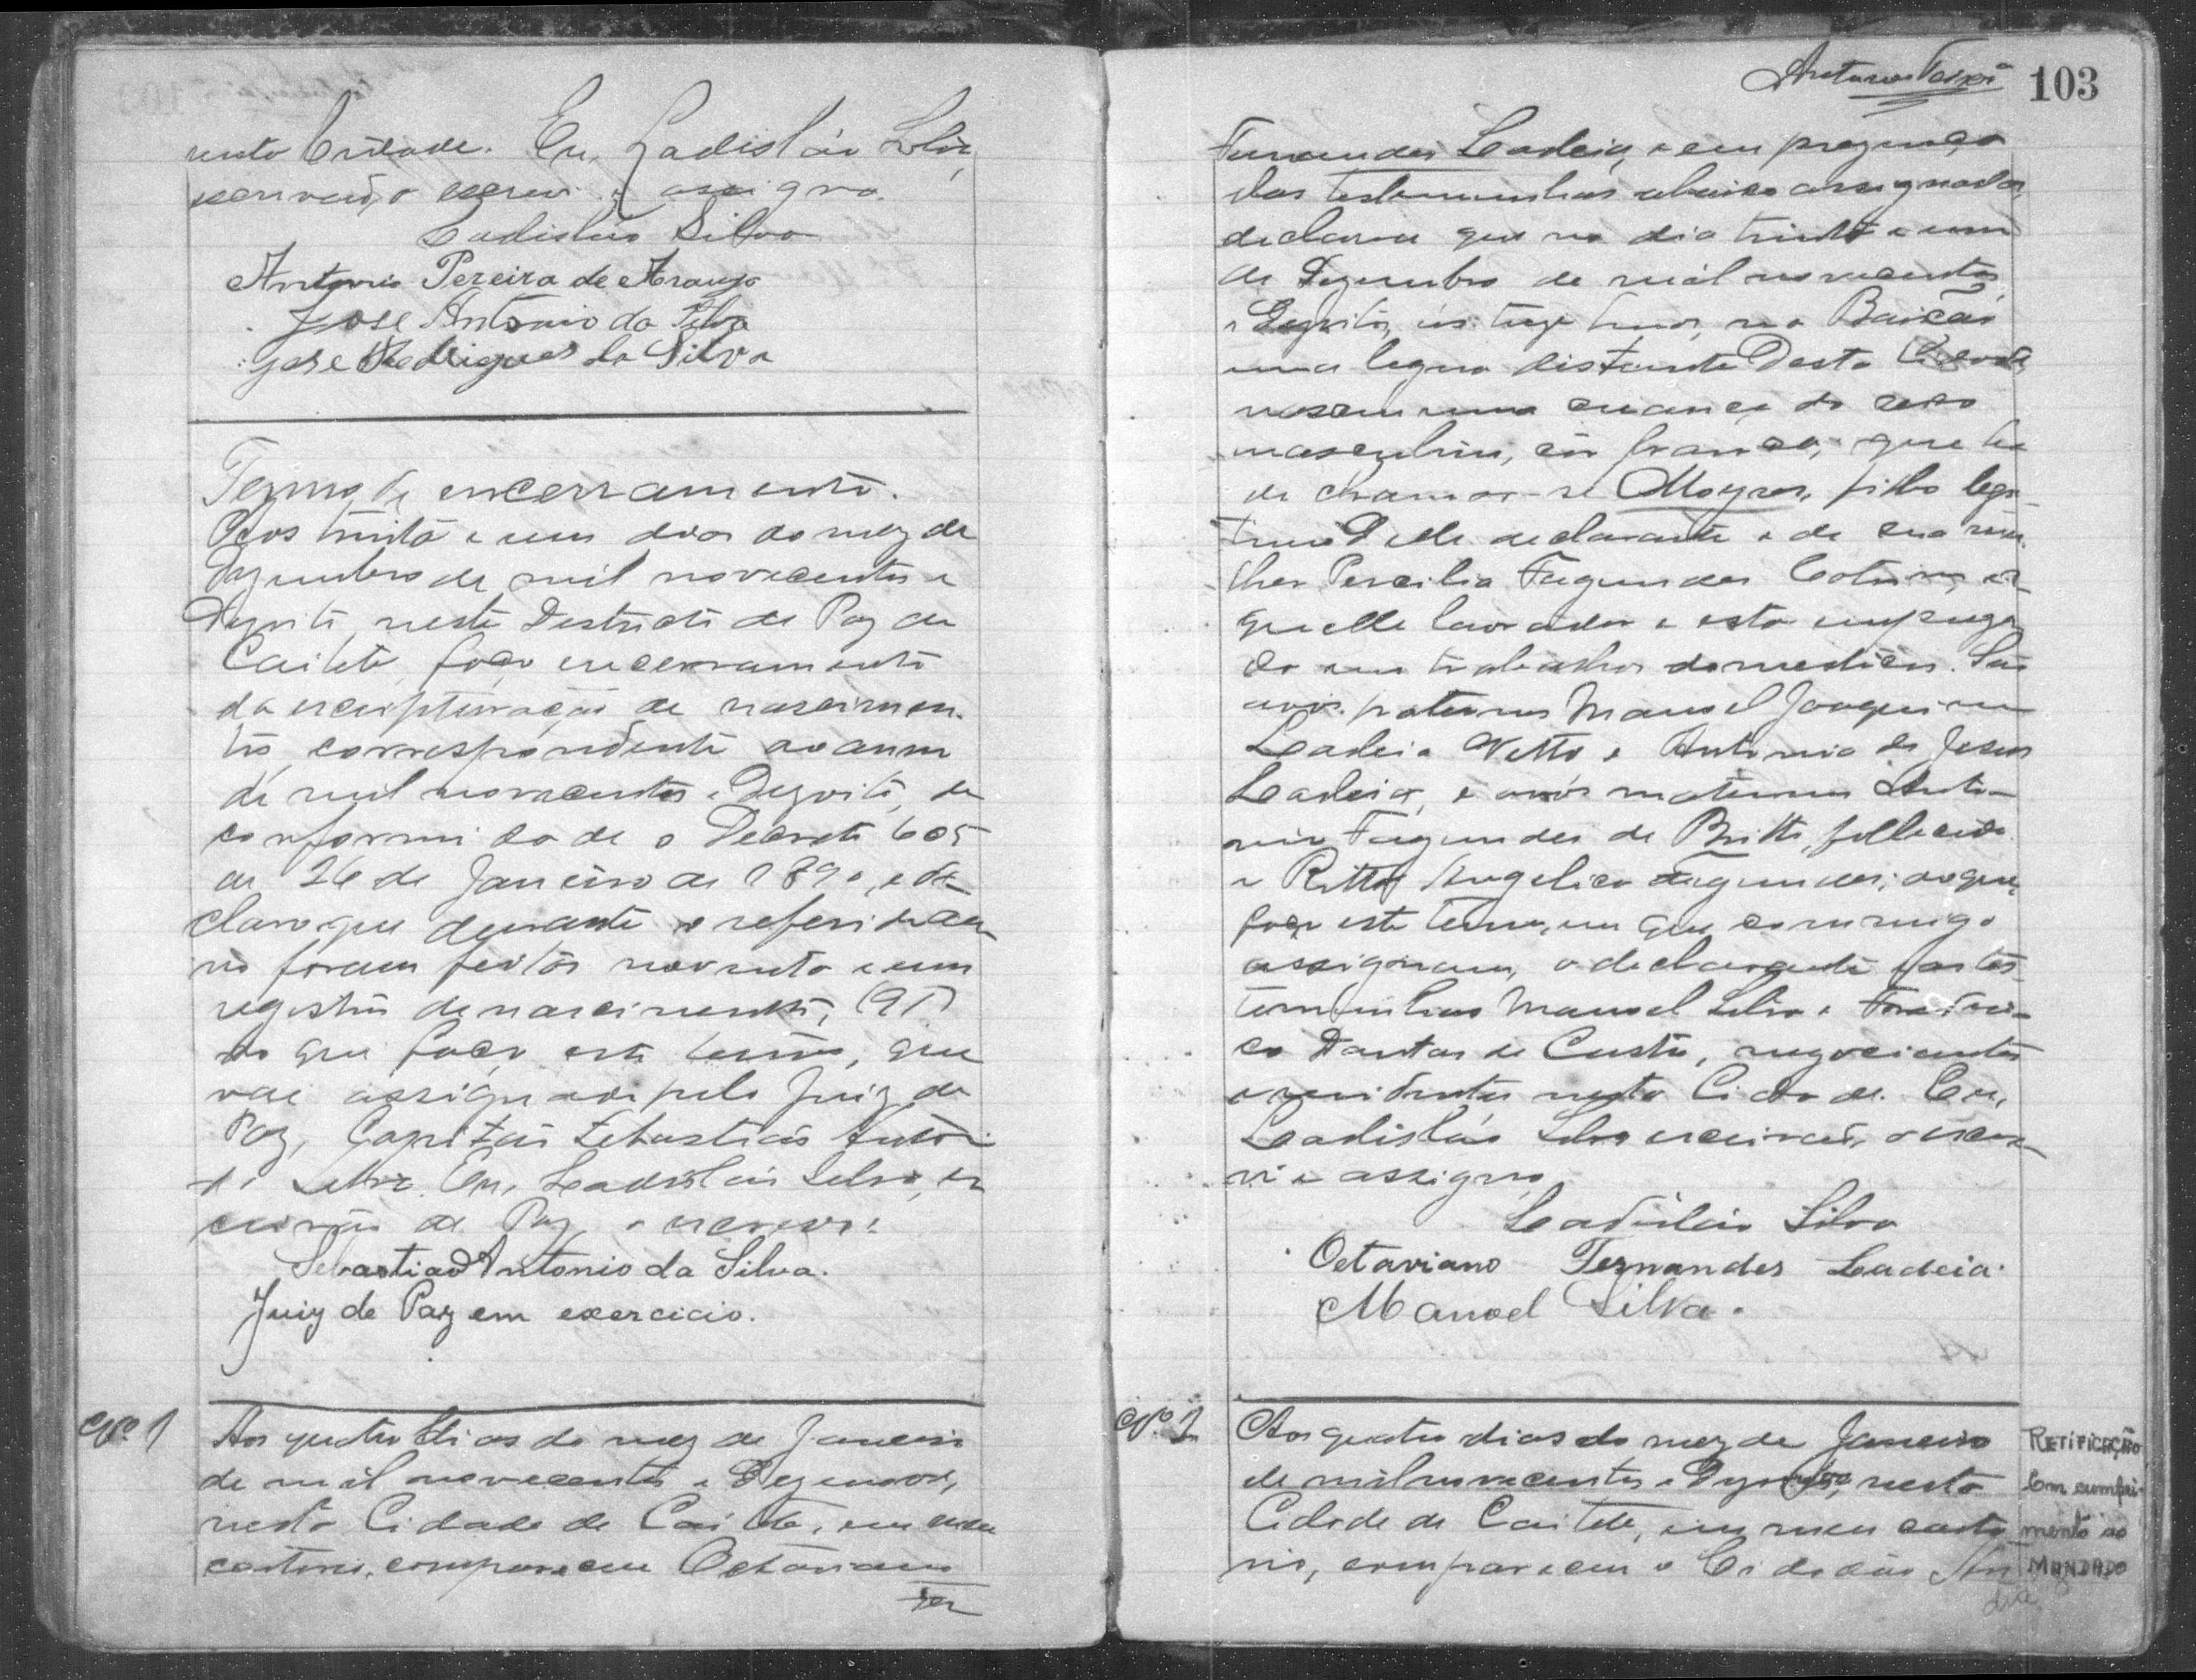 nesta Cidade. Eu, Ladislão Silva,
escrivão, o escrevi e assigno.
Ladislão Silva
Antonio Pereira de Araujo
Jose Antonio da Silva
Jose Rodrigues da Silva
Termo de encerramento.
Aos trinta e um dias do mez de
Dezembro de mil novecentos e
Dezoito, neste Destricto de Paz de
Caiteté, faço encerramento
da escripturação de nascimen-
tos correspondente ao anno
de mil novecentos e Dezoito, de
conformidade o Decreto 605
de 26 de Janeiro de 1890, e de-
claro que durante o referido an-
no foram feitos noventa e um
registros de nascimentos, (91)
do que faço este termo, que
vae assignado pelo Juiz de
Paz, Capitão Sebastião Anto-
Silva. Eu, Ladislão Silva, es-
crivão de Paz, o escrevi.
Sebastião Antonio da Silva.
Juiz de Paz em exercicio.
Nº 1
Aos quatro dias do mez de Janeiro
de mil novecentos e Dezenove,
nesta Cidade de Caiteté, em meu
cartorio, compareceu Octaviano
Fer
103
Fernandes Ladeia, e em prezença
das testemunhas abaixo assignadas,
declarou que no dia trinta e um
de Dezembro de mil novecentos
e Dezoito, ás treze horas, no Baixão
uma legua distante Desta Cidade
nasceu uma criança do sexo
masculino, côr branca, que ha
de chamar-se Moyses, filho legi-
timo Delle declarante e de sua mu-
lher Percilia Fagundes Cotrim,
aquelle lavrador e esta emprega-
da em trabalhos domesticos. São
avós paternos Manoel Joaquim
Ladeia Netto e Antonia de Jesus
Ladeia, e avós maternos Anto-
nio Fagundes de Britto, fallecido
e Ritta Angelica Fagundes; do que,
faço este termo, em que commigo
assignam, o declarante e as tes-
temunhas Manoel Silva e
Dantas de Castro, negociantes
e residentes nesta Cidade. Eu,
Ladislão Silva escrivão, o escre-
vi e assigno.
Ladislão Silva
Octaviano Fernandes Ladeia.
Manoel Silva.
Nº 2
Aos quatro dias do mez de Janeiro
de mil novecentos e Dezenove, nesta
Cidade de Caiteté, em meu carto-
rio, compareceu o Cidadão
RETIFICAÇÃO
Em cumpri-
mento ao
MANDADO